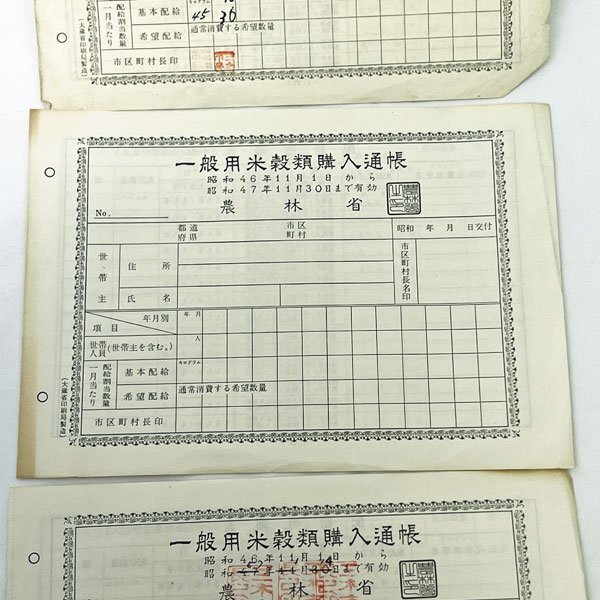 キログラム
45 36
一月当たり
配給割当数量
基本配給
希望配給
通常消費する希望数量
市区町村長印
(大蔵省印刷局製造)
一般用米穀類購入通帳
昭和46年11月1日から
昭和47年11月30日まで有効
農林省
No.
都道府県
市区町村
昭和 年 月 日交付
世帯主
住所
氏名
市区町村長名印
年月別
項目
年 月
世帯人員(世帯主を含む。)
人
一月当たり
配給割当数量
基本配給
キログラム
希望配給
通常消費する希望数量
市区町村長印
(大蔵省印刷局製造)
一般用米穀類購入通帳
昭和46年11月1日から
昭和47年11月30日まで有効
農林省